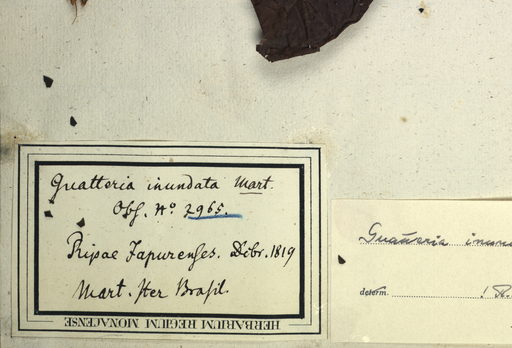 Guatteria inundata Mart.
Obs. No. 2965.
Ripae Japurenses. Dcbr. 1819
Mart. Iter Brasil.
HERBARIUM REGIUM MONACENSE
Guatteria
determ.